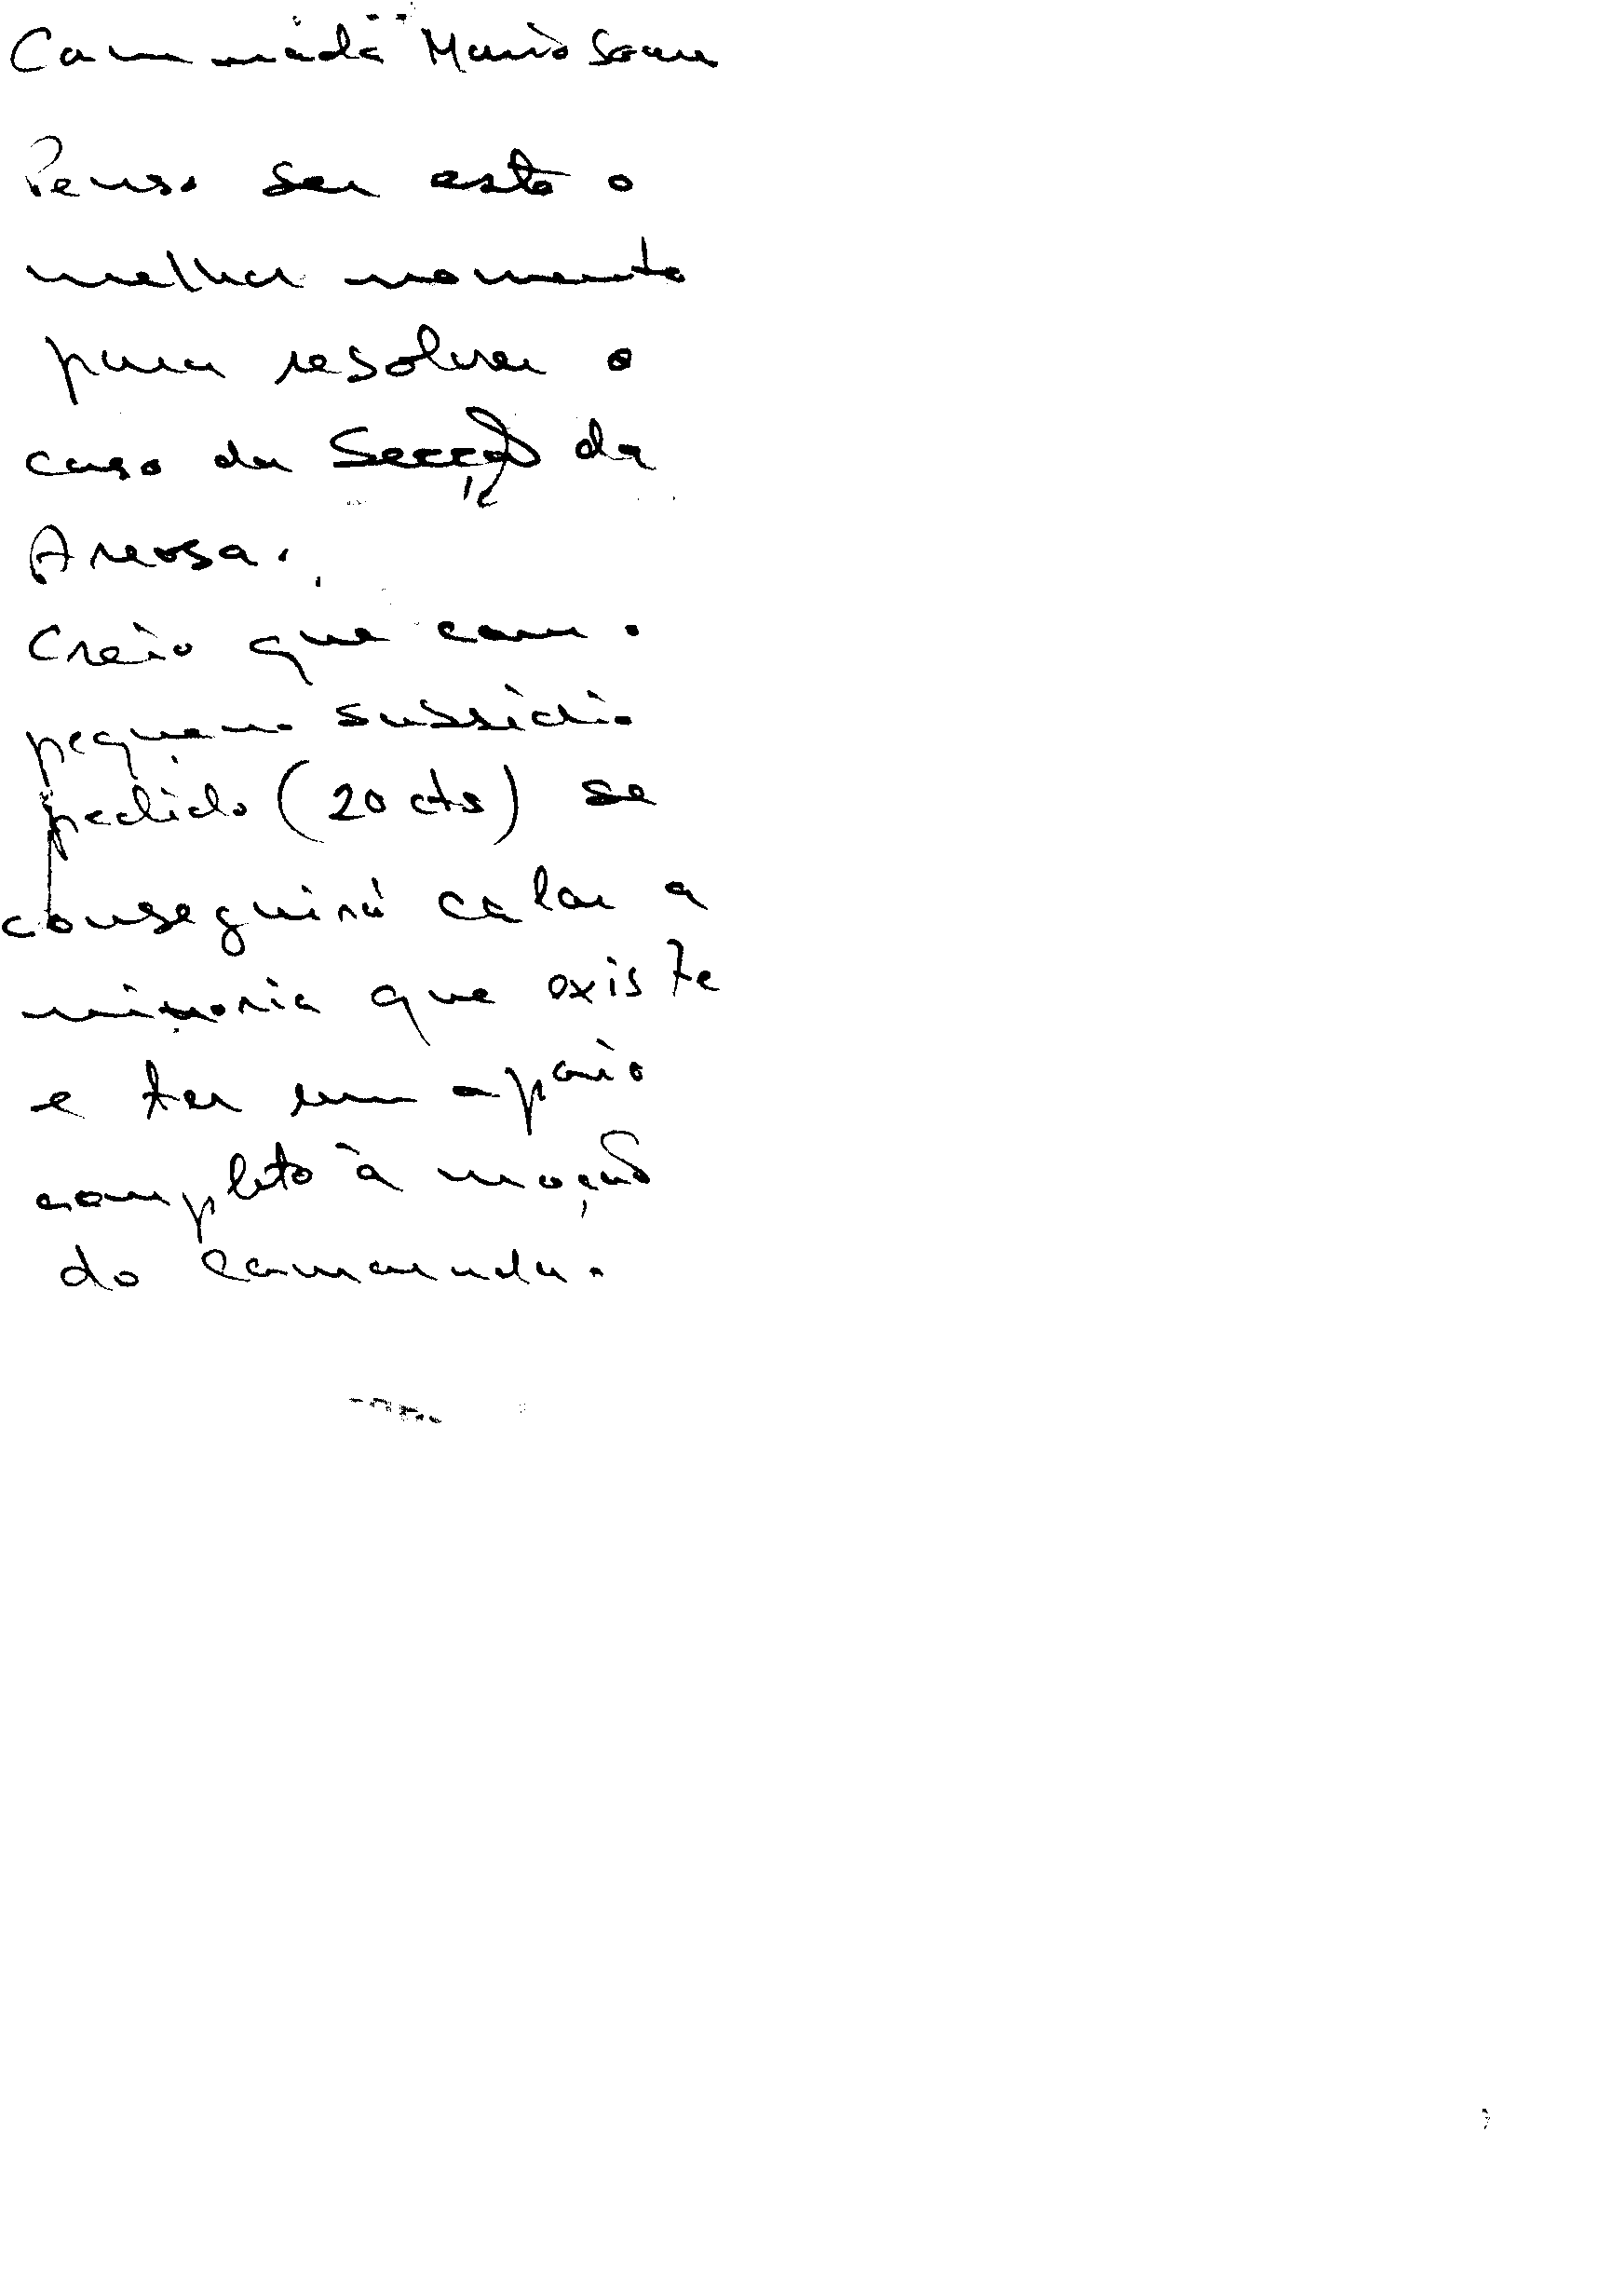 Camarada Mario Soares
Penso ser este o
melhor momento
para resolver o
caso da Secção da
Areosa.
Creio que com o
pequeno subsidio
pedido (20 cts) se
conseguirá calar a
minoria que existe
e ter um apoio
completo à moção
do camarada.